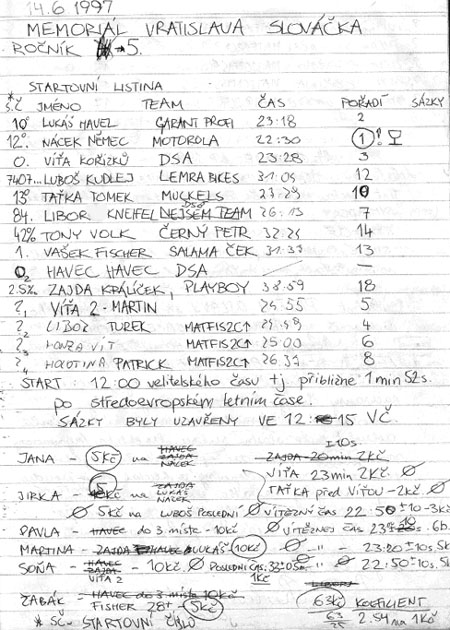 14.6 1997
MEMORIÁL VRATISLAVA SLOVÁČKA
ROČNÍK → 5.
STARTOVNÍ LISTINA
* S.Č JMÉNO TEAM ČAS POŘADÍ SÁZKY
10° LUKÁŠ HAVEL GARANT PROFI 23:18 2
12°. NÁCEK NĚMEC MOTOROLA 22:30 1 !
0. VÍŤA KOŘÍZKŮ DSA 23:28 3
7407... LUBOŠ KUDLEJ LEMRA BIKES 31:05 12
13 TAŤKA TOMEK MUCKELS 10
84. LIBOR KNEIFEL DEJSEM TEAM DSA 26:13 7
42% TONY VOLK ČERNÝ PETR 32:21 14
1. VAŠEK FISCHER SALAMA ČEK 31:37 13
O₂ HAVEC HAVEC DSA — —
2.5‰ ZAJDA KRÁLÍČEK, PLAYBOY 38:59 18
?₁ VÍŤA 2 - MARTIN 24:55 5
?₂ LIBOR TUREK MATFIS2C↑ 4
?₃ HONZA VÍT MATFIS2C↑ 25:00 6
?₄ PATRICK MATFIS2C↑ 26:37 8
START : 12:00 velitelského času tj přibližně 1 min 52s.
po středoevropském letním čase.
SÁZKY BYLY UZAVŘENY VE 12: 15 VČ.
± 10s.
JANA – 5Kč na HAVEC ZAJDA NÁCEK
ZAJDA - 20 min 2Kč
VÍŤA 23 min 2Kč. Ø
JIRKA – 5 Kč na ZAJDA LUKÁŠ NÁCEK
TAŤKA před VÍŤOU - 2Kč. Ø
Ø 5Kč na LUBOŠ POSLEDNÍ Ø VÍTĚZNÝ ČAS 22:50 ±10 - 3Kč
PAVLA – HAVEC do 3 místa - 10Kč Ø VÍTĚZNEJ ČAS
MARTINA – ZAJDA HAVEC LUKÁŠ 10Kč Ø – " – 23:20 ±10s.
SOŇA – HAVEC ZAJDA VÍŤA 2 - 10Kč. Ø POSLEDNÍ ČAS 1Kč Ø – " – 22:50 ±10s.
ŽABÁK – HAVEC do 3 místa 10Kč
FISHER 28+ - 5Kč
63Kč KOEFICIENT
63 2.54 na 1Kč
* SČ – STARTOVNÍ ČÍSLO